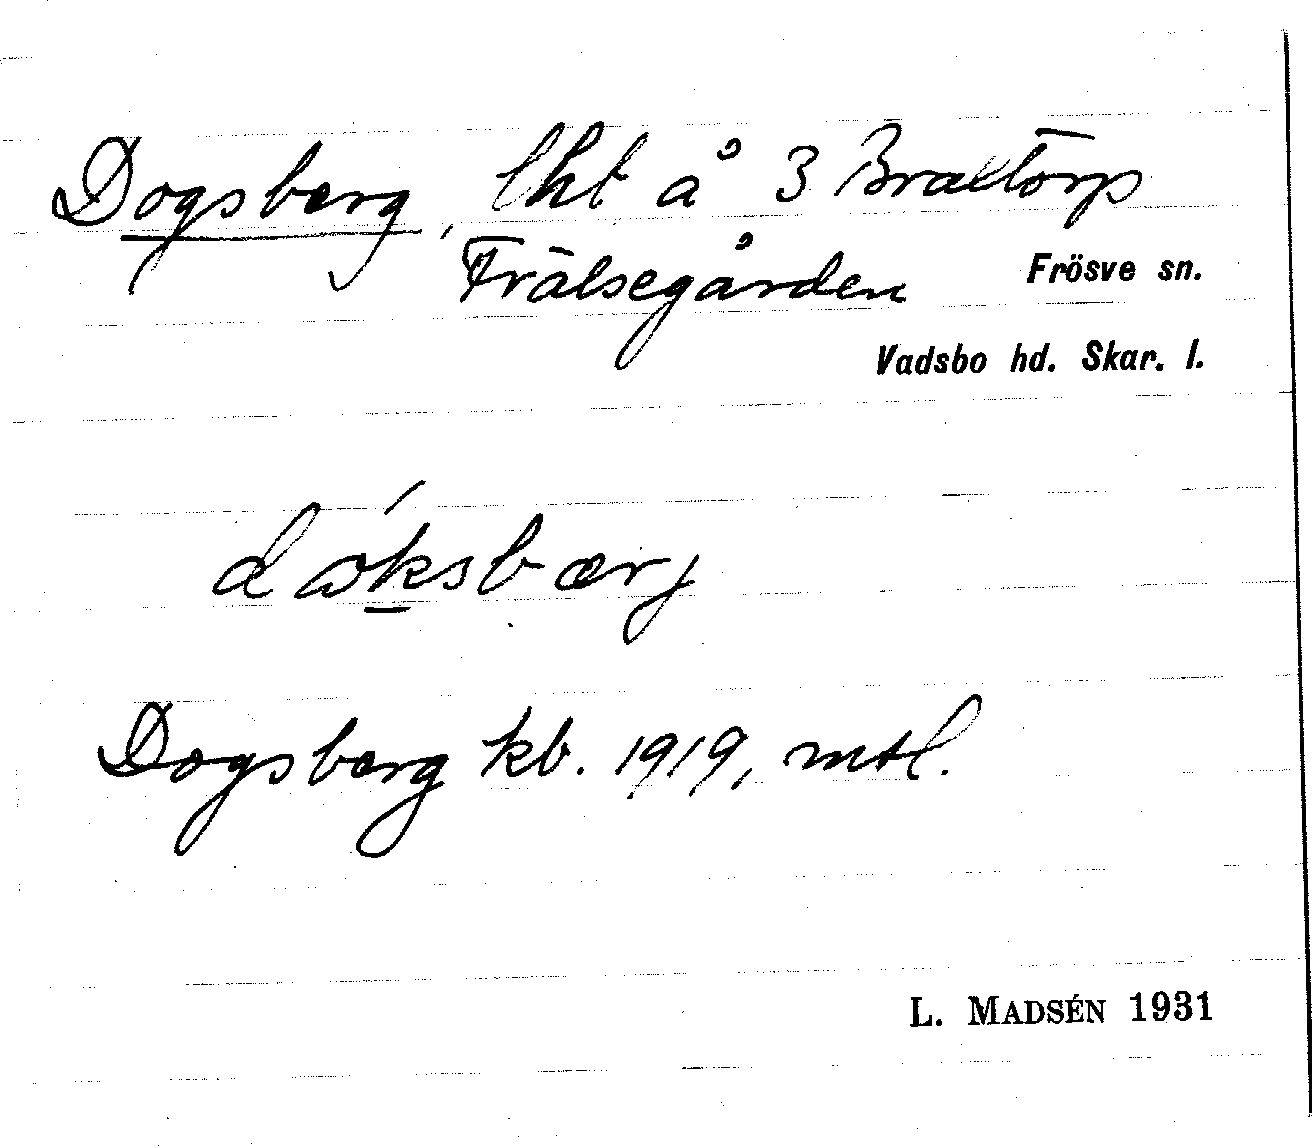 Dogsberg, lht å 3 Brattorp
Frälsegården Frösve sn.
Vadsbo hd. Skar. l.
dωksbærj
Dogsberg kb. 1919, mtl.
L. MADSÉN 1931